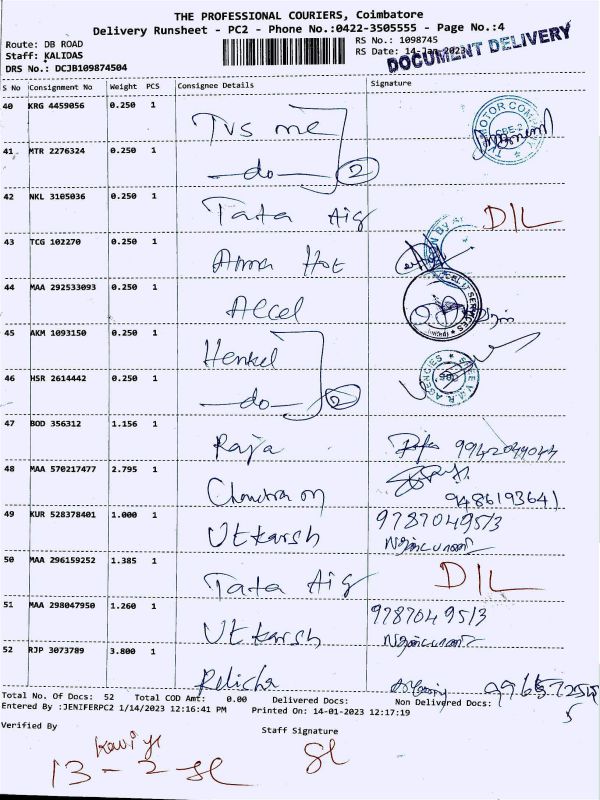 THE PROFESSIONAL COURIERS, Coimbatore
Delivery Runsheet - PC2 - Phone No.:0422-3505555 - Page No.:4
Route: DB ROAD
Staff: KALIDAS
DRS No.: DCJB109874504
RS No.: 1098745
RS Date: 14-Jan-2023
DOCUMENT DELIVERY
S No Consignment No Weight PCS Consignee Details Signature
40 KRG 4459056 0.250 1 TVS me
41 MTR 2276324 0.250 1 —do— 2
42 NKL 3105036 0.250 1 Tata Aig D/L
43 TCG 102270 0.250 1 Amma Hot
44 MAA 292533093 0.250 1 Accel
45 AKM 1093150 0.250 1 Henkel
46 HSR 2614442 0.250 1 —do— 2
47 BOD 356312 1.156 1 Raja 9942049044
48 MAA 570217477 2.795 1 Chandra 9486193641
49 KUR 528378401 1.000 1 Utkarsh 9787049513
50 MAA 296159252 1.385 1 Tata Aig D/L
51 MAA 298047950 1.260 1 Utkarsh 9787049513
52 RJP 3073789 3.800 1 Relisha
Total No. Of Docs: 52 Total COD Amt: 0.00 Delivered Docs: Non Delivered Docs:
Entered By :JENIFERPC2 1/14/2023 12:16:41 PM Printed On: 14-01-2023 12:17:19
Verified By Staff Signature
13-2